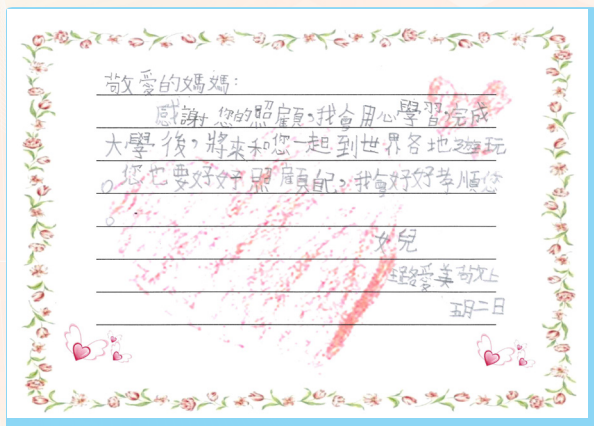 敬愛的媽媽：
感謝您的照顧，我會用心學習完成
大學後，將來和您一起到世界各地遊玩
。您也要好好照顧自己，我會好好孝順您
。
女兒
路愛美敬上
五月二日